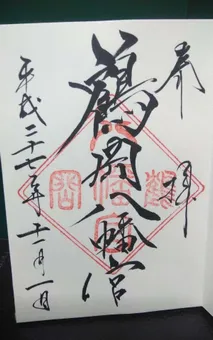 奉拝
鶴岡八幡宮
平成二十七年十一月一日